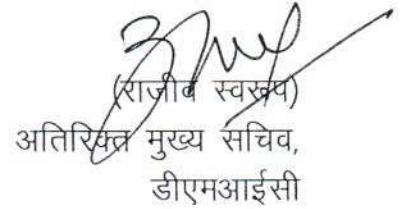 (राजीव स्वरूप)
अतिरिक्त मुख्य सचिव,
डीएमआईसी